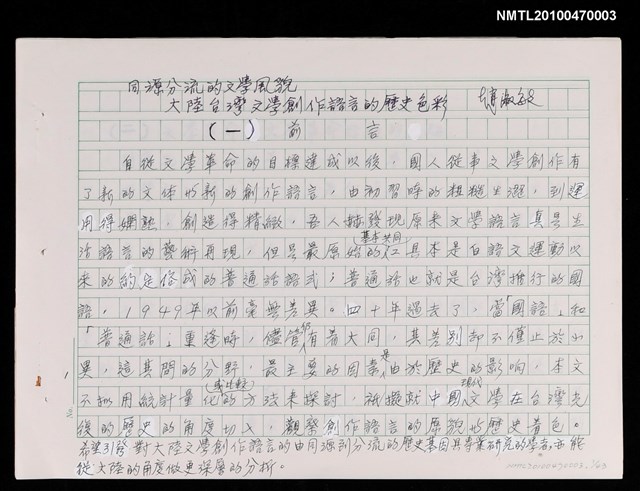 NMTL20100470003
同源分流的文學風貌
大陸台灣文學創作語言的歷史色彩
(一) 前言
自從文學革命的目標達成以後，國人從事文學創作有
了新的文体和新的創作語言，由初習時的粗糙生澀，到運
用得嫻熟，創造得精緻，吾人赫發現原來文學語言真是生
活語言的藝術再現，但是最原始的
基本共同
本是白話文運動以
來的約定俗成的普通話語式；普通話也就是台灣推行的國
語，1949年以前毫無差異。四十年過去了，當「國語」和
「普通話」重逢時，儘管仍有着大同，其差別却不僅止於小
異，這其間的分野，最主要的因素是由於歷史的影响，本文
不擬用統計量化的
(或比較)
方法來探討，祇擬就中國
現代
文學在台灣先
後的歷史的角度切入，觀察創作語言的原貌和歷史着色。
希望引發對大陸文學創作語言的由同源到分流的歷史基因具專業研究的學者，也能
從大陸的角度做更深層的分析。
NMTL20100470003